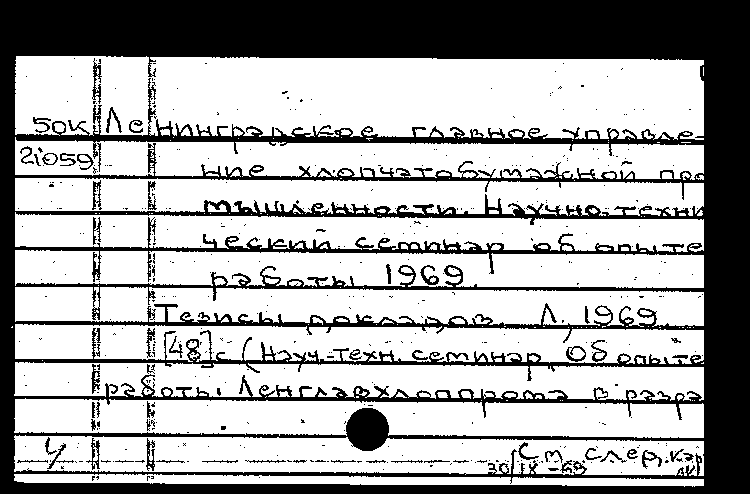 50к Ленинградское главное управле-
21059 ние хлопчатобумажной про
мышленности. Научно-техни
ческий семинар об опыте
работы 1969.
Тезисы докладов. Л., 1969
[48]с (Науч.-техн. семинар "Об опыте
работы Ленглавхлоппрома в разра
4 См след. кар
30/IX-69